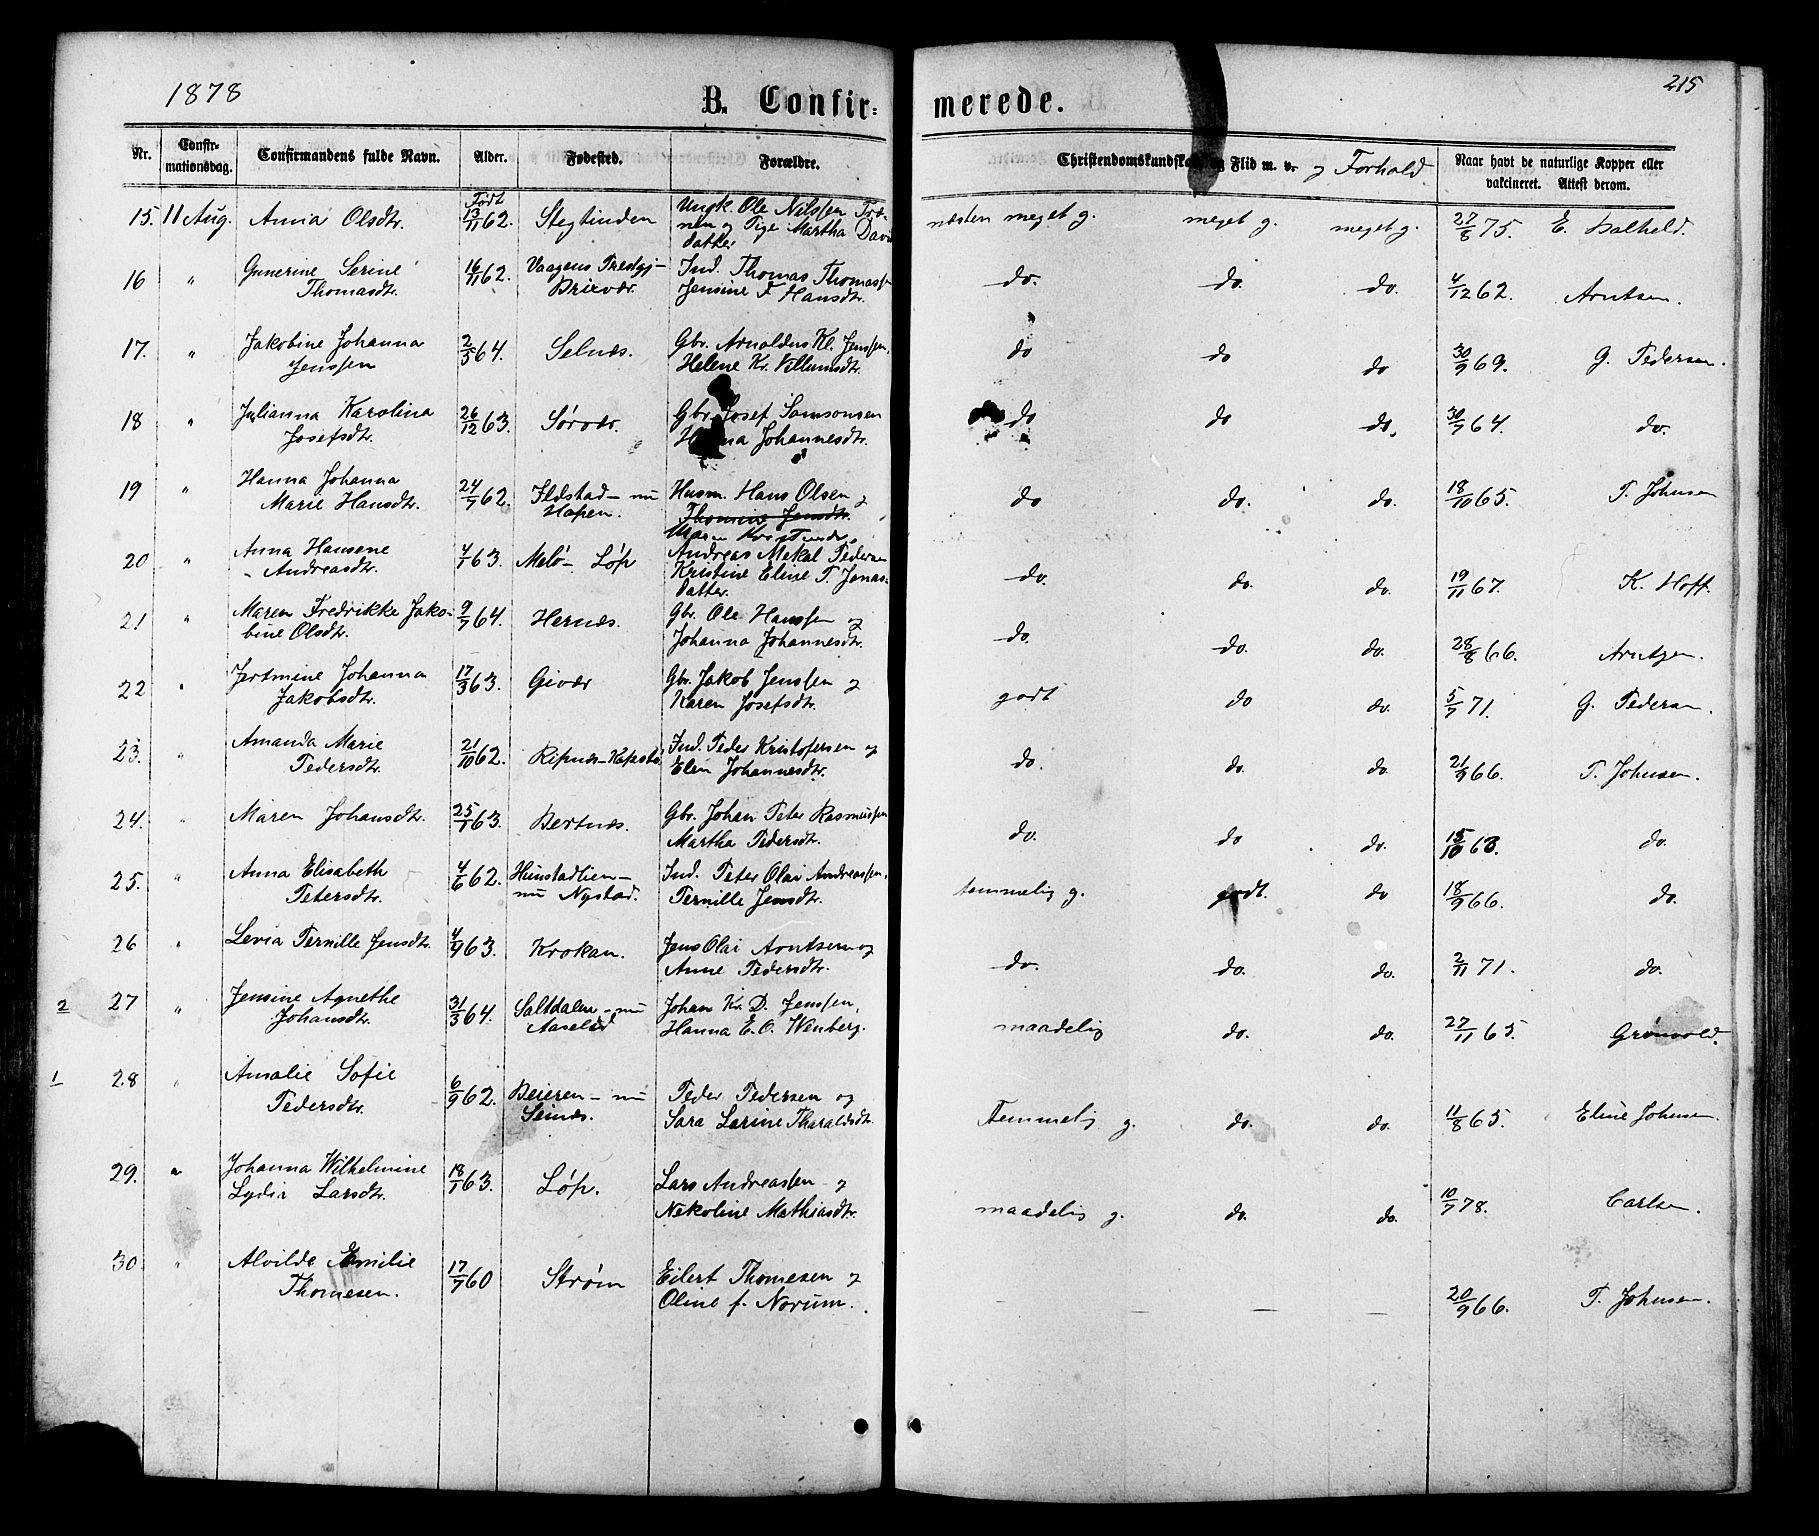 1878
B. Confir-
merede.
215
Nr.
Confir-
mationsdag.
Confirmandens fulde Navn.
Alder.
Fødested.
Forældre.
Christendomskundskab og Flid m. v. og Forhold
Naar havt de naturlige Kopper eller
vakcineret. Attest derom.
15. 11 Aug. Anna Olsdtr. Født 13/11 62. Stegtinden
Ungk. Ole Nilssen Træ-
nen og Pige Martha Davids
datter
næsten meget g. meget g. meget g. 27/8 75. E. Dalheld.
16 " Gunerine Serine
Thomasdtr.
16/11 62. Vaagens Prestgj-
Brixvær.
Ind. Thomas Thomassen
Jensine F Hansdtr.
do. do. do. 4/12 62. Arntsen.
17. " Jakobine Johanna
Jenssen
2/5 64. Selnæs.
Gbr. Arnoldus Kl. Jenssen,
Helene Kr. Villumsdtr.
do do do 30/9 69. G. Pedersen.
18 " Julianna Karolina
Josefsdtr.
26/12 63. Sørvær.
Gbr. Josef Samsonsen
Johannesdtr.
do do do. 30/7 64. do.
19 " Hanna Johanna
Marie Hansdtr.
24/7 62. Ildstad - nu
Hopen.
Husm. Hans Olsen og
Thomine Jensdtr.
Maren
do do. do. 18/10 65. T. Johnsen
20 " Anna Hansene
Andreasdtr.
4/1 63. Melø - Løp
Andreas Mekal Pedersen
Kristine Eline P. Jonas-
datter.
do. do. do. 19/11 67. K. Hoff.
21 " Maren Fredrikke Jako-
bine Olsdtr.
9/7 64. Hernæs.
Gbr. Ole Hanssen og
Johanna Johannesdtr.
do. do. do. 28/8 66. Arntzen.
22 " Jertmine Johanna
Jakobsdtr.
17/3 63. Givær
Gbr. Jakob Jenssen og
Karen Josefsdtr.
godt do do. 5/7 71. G. Pedersen.
23. " Amanda Marie
Pedersdtr.
21/10 62. Ripnæs - Kapstø
Ind. Peder Kristofersen og
Elen Johannesdtr.
do. do. do. 21/9 66. T. Johnsen.
24. " Maren Johansdtr. 25/1 63. Bertnæs.
Gbr. Johan Peter Rasmussen
Martha Pedersdtr.
do. do do. 15/10 63. do.
25. " Anna Elisabeth
Petersdtr.
4/6 62. Hunstadlien -
nu Nystad.
Ind. Peter Olai Andreassen,
Pernille Jensdtr.
temmelig g. godt. do 18/9 66. do.
26 " Levia Pernille Jensdtr. 4/9 63. Krokan.
Jens Olai Arntsen og
Anne Pedersdtr.
do. do. do. 2/11 71. do.
2 27 " Jensine Agnethe
Johansdtr.
31/3 64. Saltdalen - nu
Aaselid
Johan Kr. D. Jenssen,
Hanna E. O. Wenberg.
maadelig do. do. 27/11 65. Grønvold.
1 28 " Amalie Sofie
Pedersdtr.
6/9 62. Beieren - nu
Seinæs.
Peder Pedersen og
Sara Larine Tharaldsdtr.
Temmelig g. do. do. 11/8 65. Eline Johnsen.
29. " Johanna Wilhelmine
Lydia Larsdtr.
18/1 63. Løp.
Lars Andreassen - og
Nekoline Mathiasdtr.
maadelig g. do. do. 10/7 78. Carlsen.
30 " Alvilde Emilie
Thomesen.
17/7 60 Strøm
Eilert Thomesen og
Oline f. Norum.
— — — 20/9 66. T. Johnsen.